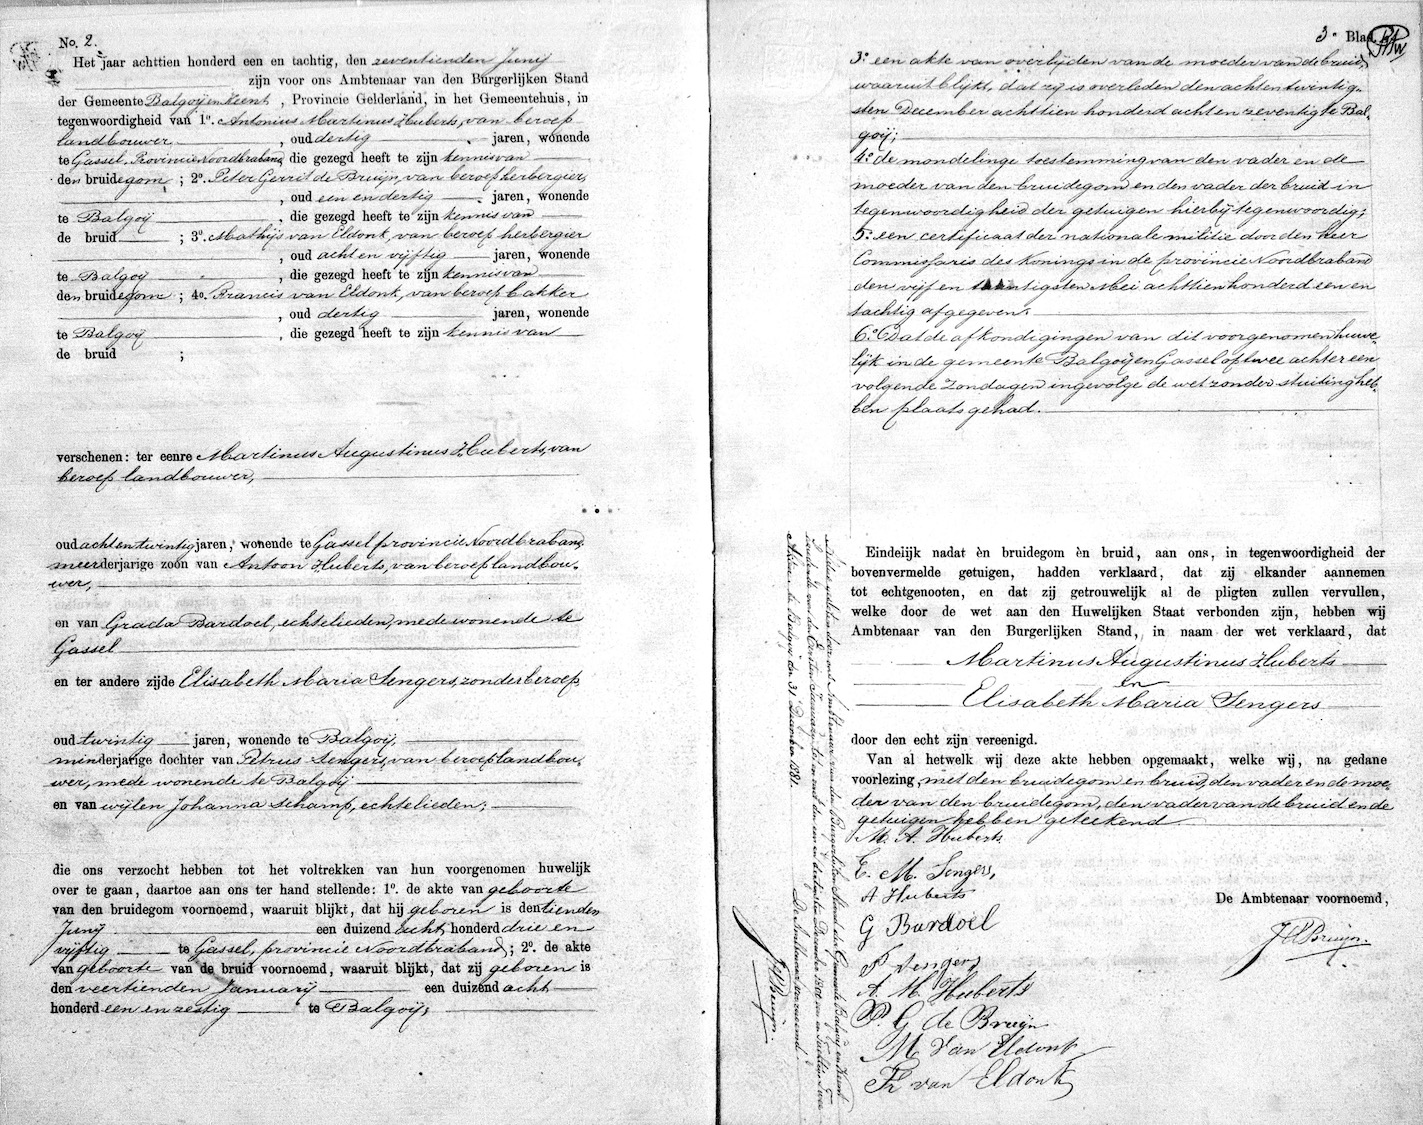 No. 2.
Het jaar achttien honderd een en tachtig, den zeventienden Junij
zijn voor ons Ambtenaar van den Burgerlijken Stand
der Gemeente Balgoij en Keent, Provincie Gelderland, in het Gemeentehuis, in
tegenwoordigheid van 1º. Antonius Martinus Huberts, van beroep
landbouwer, , oud dertig jaren, wonende
te Gassel, Provincie Noordbraband, die gezegd heeft te zijn kennis van
den bruidegom ; 2º. Peter Gerrit de Bruijn, van beroep herbergier,
, oud een en dertig jaren, wonende
te Balgoij , die gezegd heeft te zijn kennis van
de bruid ; 3º. Mathijs van Eldonk, van beroep herbergier
, oud acht en vijftig jaren, wonende
te Balgoij , die gezegd heeft te zijn kennis van
den bruidegom ; 4º. Francis van Eldonk, van beroep bakker
, oud dertig jaren, wonende
te Balgoij , die gezegd heeft te zijn kennis van
de bruid ;
verschenen: ter eenre Martinus Augustinus Huberts, van
beroep landbouwer,
oud acht en twintig jaren, wonende te Gassel provincie Noordbraband,
meerderjarige zoon van Antoon Huberts, van beroep landbou-
wer,
en van Grada Bardoel, echtelieden, mede wonende te
Gassel
en ter andere zijde Elisabeth Maria Sengers, zonder beroep,
oud twintig jaren, wonende te Balgoij,
minderjarige dochter van Petrus Sengers, van beroep landbou-
wer, mede wonende te Balgoij
en van wijlen Johanna Schamp, echtelieden;
die ons verzocht hebben tot het voltrekken van hun voorgenomen huwelijk
over te gaan, daartoe aan ons ter hand stellende: 1º. de akte van geboorte
van den bruidegom voornoemd, waaruit blijkt, dat hij geboren is den tienden
Junij een duizend acht honderd drie en
vijftig te Gassel, provincie Noordbraband; 2º. de akte
van geboorte van de bruid voornoemd, waaruit blijkt, dat zij geboren is
den veertienden Januarij een duizend acht
honderd een en zestig te Balgoij;
3e Blad.
3º een akte van overlijden van de moeder van de bruid,
waaruit blijkt, dat zij is overleden den acht en twintig-
sten December achttien honderd acht en zeventig te Bal-
goij;
4º de mondelinge toestemming van den vader en de
moeder van den bruidegom en den vader der bruid in
tegenwoordigheid der getuigen hierbij tegenwoordig;
5º een certificaat der nationale militie door den Heer
Commissaris des Konings in de provincie Noordbraband
den vijf en twintigsten Mei achttien honderd een en
tachtig afgegeven.
6º Dat de afkondigingen van dit voorgenomen huwe-
lijk in de gemeente Balgoij en Gassel op twee achter een
volgende Zondagen ingevolge de wet zonder stuiting heb-
ben plaats gehad.
Eindelijk nadat èn bruidegom èn bruid, aan ons, in tegenwoordigheid der
bovenvermelde getuigen, hadden verklaard, dat zij elkander aannemen
tot echtgenooten, en dat zij getrouwelijk al de pligten zullen vervullen,
welke door de wet aan den Huwelijken Staat verbonden zijn, hebben wij
Ambtenaar van den Burgerlijken Stand, in naam der wet verklaard, dat
Martinus Augustinus Huberts
en
Elisabeth Maria Sengers
door den echt zijn vereenigd.
Van al hetwelk wij deze akte hebben opgemaakt, welke wij, na gedane
voorlezing, met den bruidegom en bruid, den vader en de moe-
der van den bruidegom, den vader van de bruid en de
getuigen hebben geteekend
M. A. Huberts
E. M. Sengers,
A Huberts
G Bardoel
P Sengers
A. M. Huberts
P. G de Bruijn
M Van Eldonk
Fr van Eldonk
De Ambtenaar voornoemd,
door ons Ambtenaar van den Burgerlijken Stand der Gemeente Balgoij en Keent
Akten te Balgoij den 31 December 1881.
De Ambtenaar voornoemd